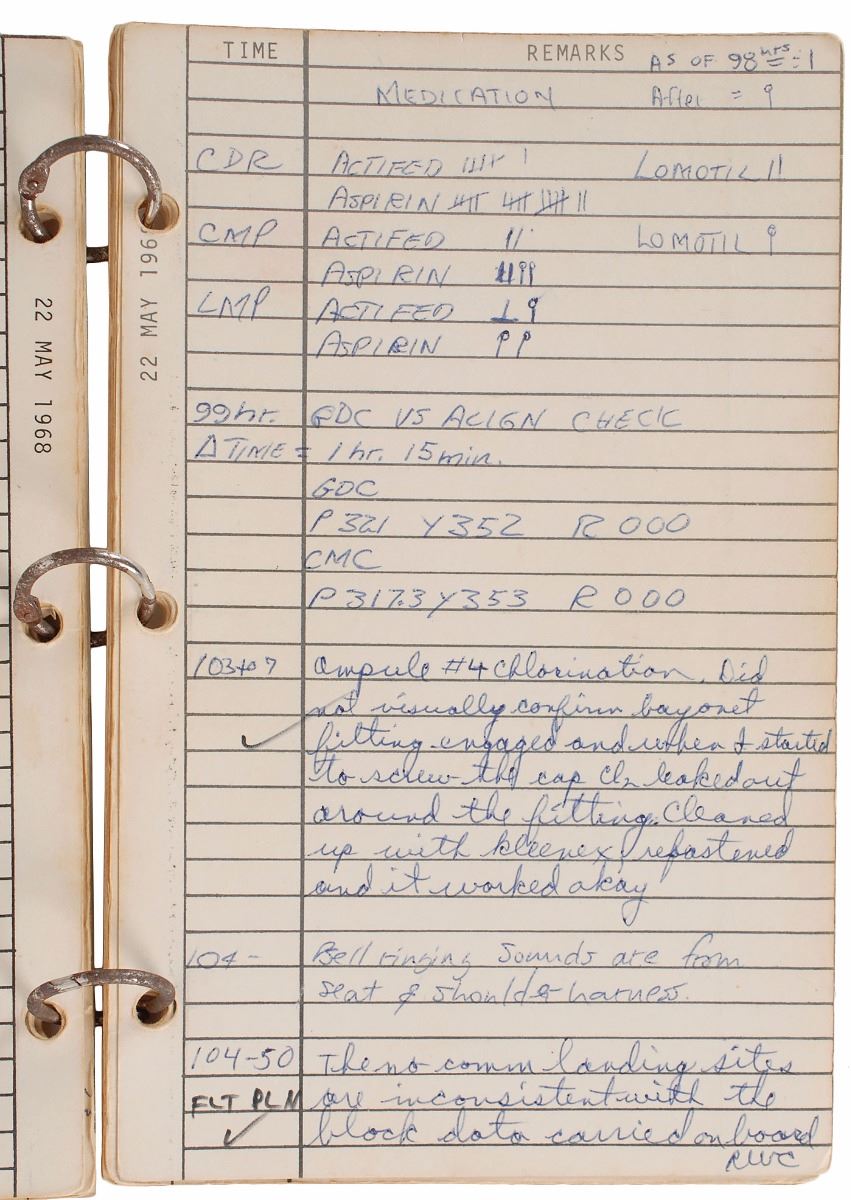 22 MAY 1968
22 MAY 196
TIME REMARKS AS OF 98 hrs = 1
MEDICATION After = 9
CDR ACTIFED LOMOTIL II
ASPIRIN
CMP ACTIFED II LOMOTIL
ASPIRIN
LMP ACTIFED
ASPIRIN
99hr. GDC VS ALIGN CHECK
Δ TIME = 1 hr. 15 min.
GDC
P 321 Y 352 R 000
CMC
P 317.3 Y 353 R 000
103+07 Ampule #4 Chlorination. Did
not visually confirm bayonet
fitting engaged and when I started
to screw the cap Cl2 leaked out
around the fitting. Cleaned
up with kleenex, refastened
and it worked okay
104- Bell ringing sounds are from
seat & shoulder harness.
104-50 The no comm landing sites
FLT PLN are inconsistent with the
block data carried on board
RWC